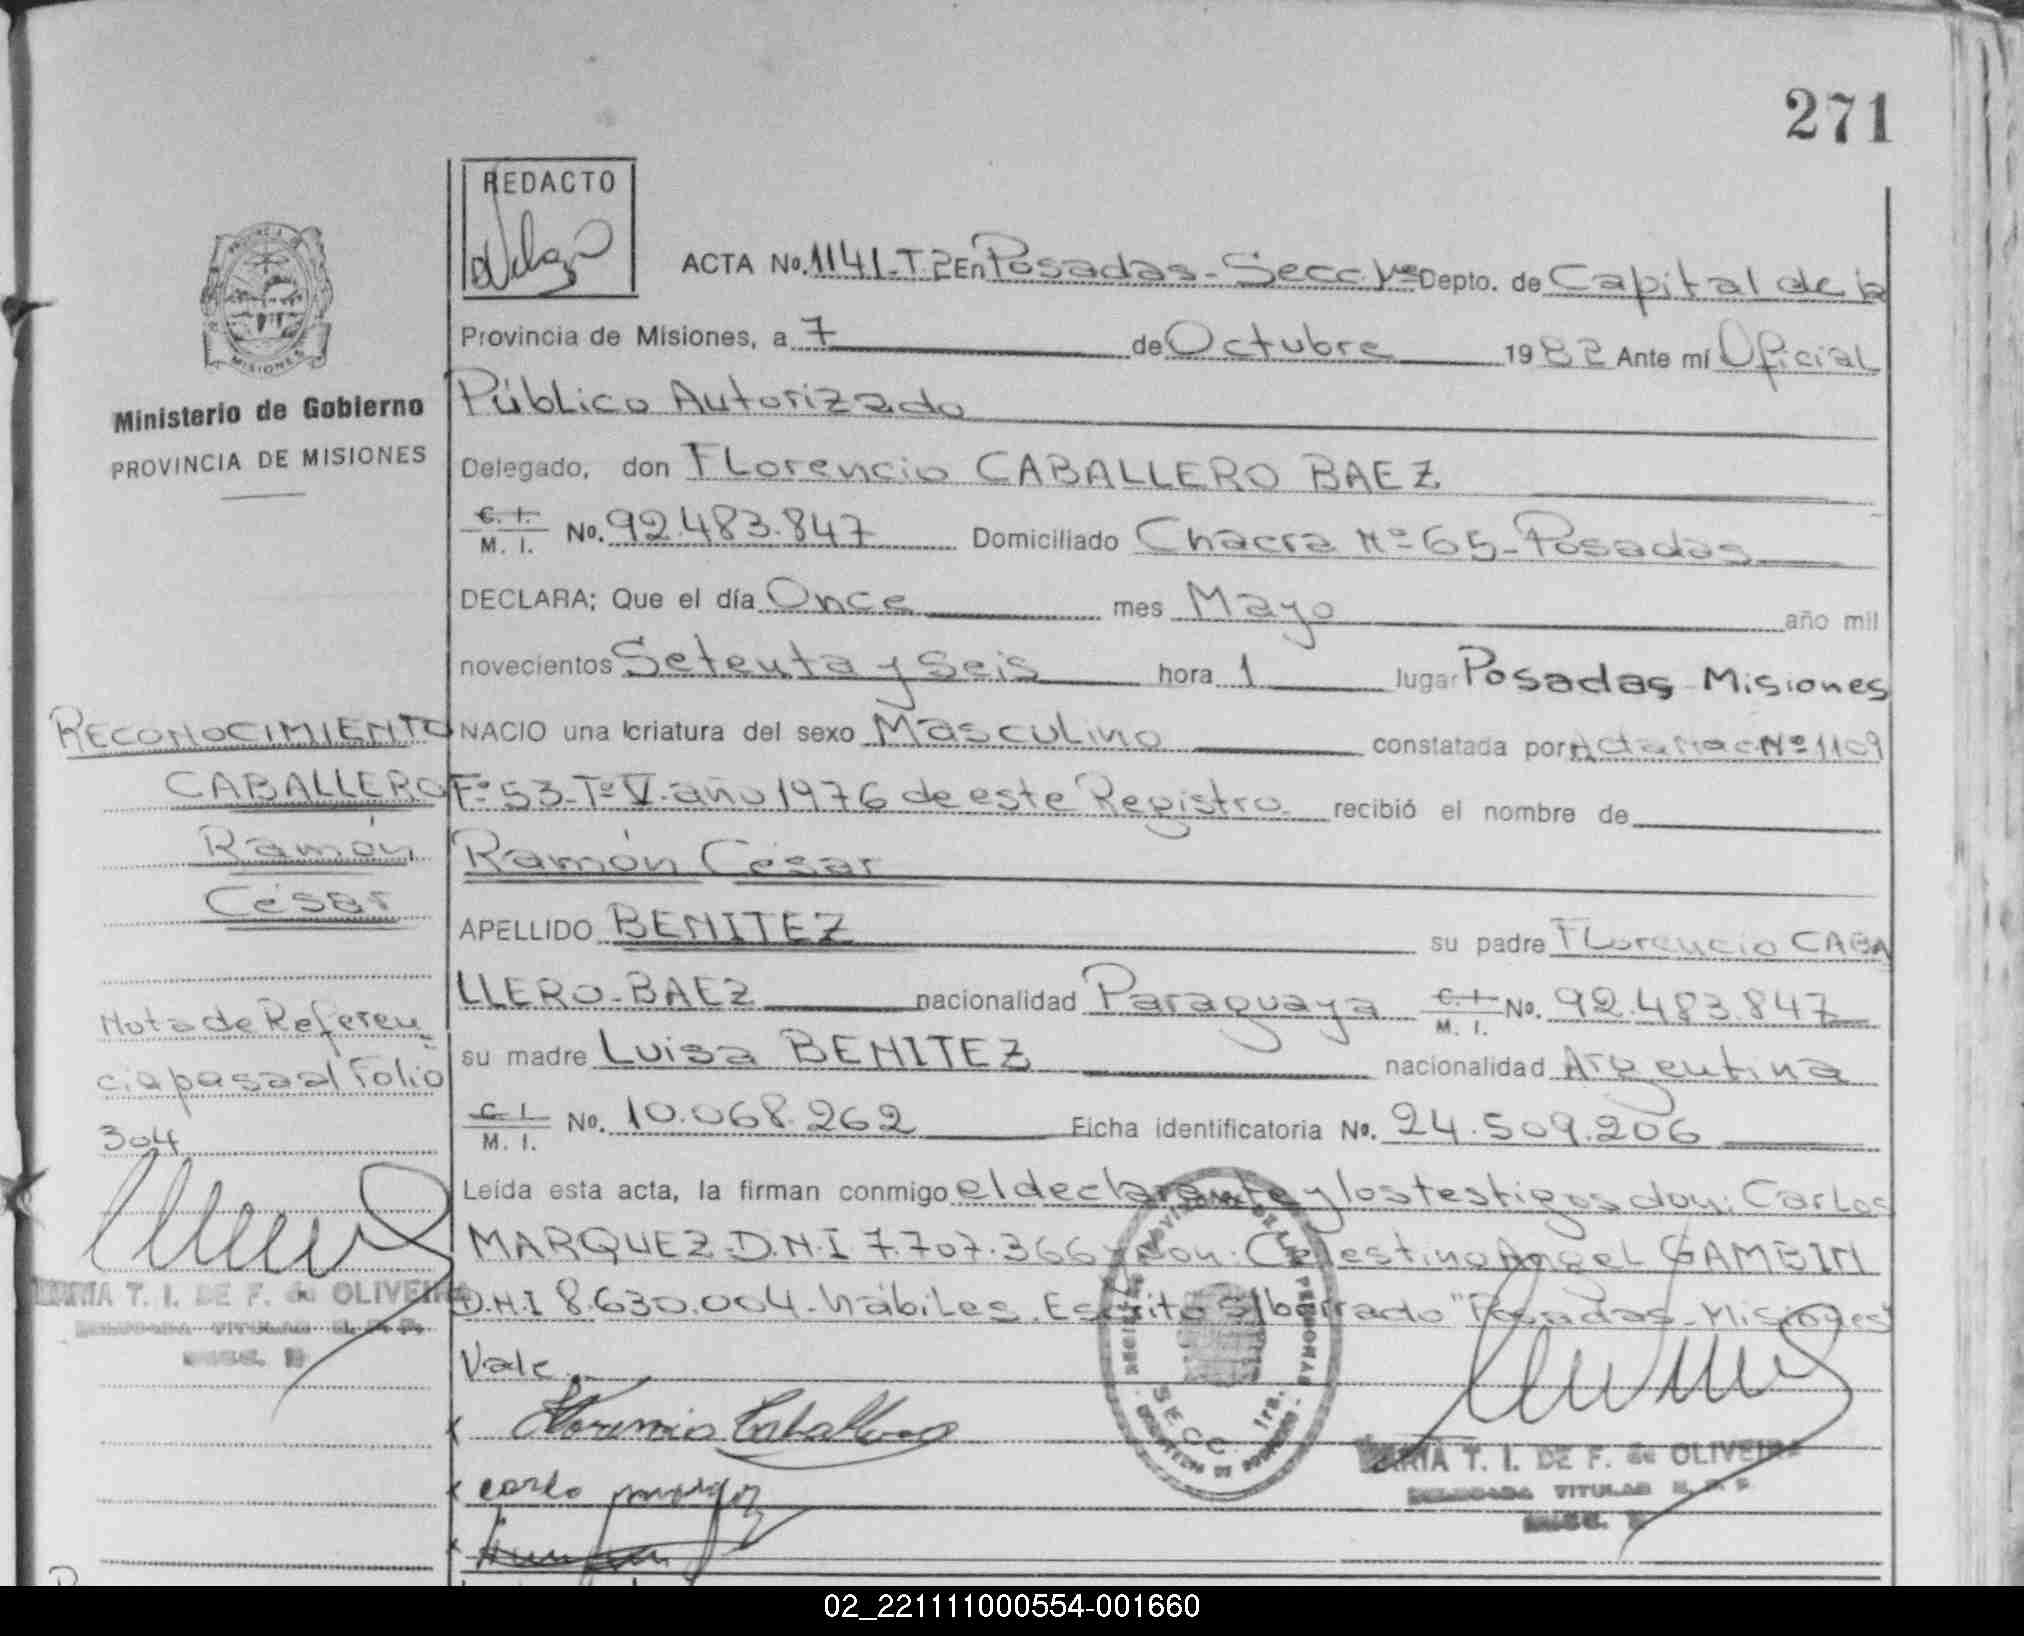 271
REDACTO
ACTA No. 1141-T.2 En Posadas-Secc 1ª Depto. de Capital de la
PROVINCIA DE
MISIONES
Provincia de Misiones, a 7 de Octubre 1982 Ante mí Oficial
Ministerio de Gobierno
PROVINCIA DE MISIONES
Público Autorizado
Delegado, don FLorencio CABALLERO BAEZ
C. I. M. I. No. 92.483.847 Domiciliado Chacra Nº 65-Posadas
DECLARA; Que el día Once mes Mayo año mil
novecientos Setenta y Seis hora 1 lugar Posadas-Misiones
RECONOCIMIENTO
NACIO una criatura del sexo Masculino constatada por Acta Nac Nº 1109
CABALLERO
Fº 53-Tº V-año 1976 de este Registro recibió el nombre de
Ramón
Ramón César
César
APELLIDO BENITEZ su padre FLorencio CABA
LLERO-BAEZ nacionalidad Paraguaya C. I. M. I. No. 92.483.847
Nota de Referen
cia pasa al Folio
304
su madre Luisa BENITEZ nacionalidad Argentina
C. I. M. I. No. 10.068.262 Ficha identificatoria No. 24.509.206
Leída esta acta, la firman conmigo el declarante y los testigos don: Carlos
MARQUEZ D.N.I 7.707.366 y don: Celestino Angel GAMBIN
D.N.I 8.630.004-hábiles. Escrito s/borrado "Posadas-Misiones"
Vale
MARIA T. I. DE F. de OLIVEIRA
DELEGADA TITULAR R. P. P.
SECC. 1ra.
x Florencio Caballero
x carlo marquez
x
MARIA T. I. DE F. de OLIVEIRA
DELEGADA TITULAR R. P. P.
02_221111000554-001660